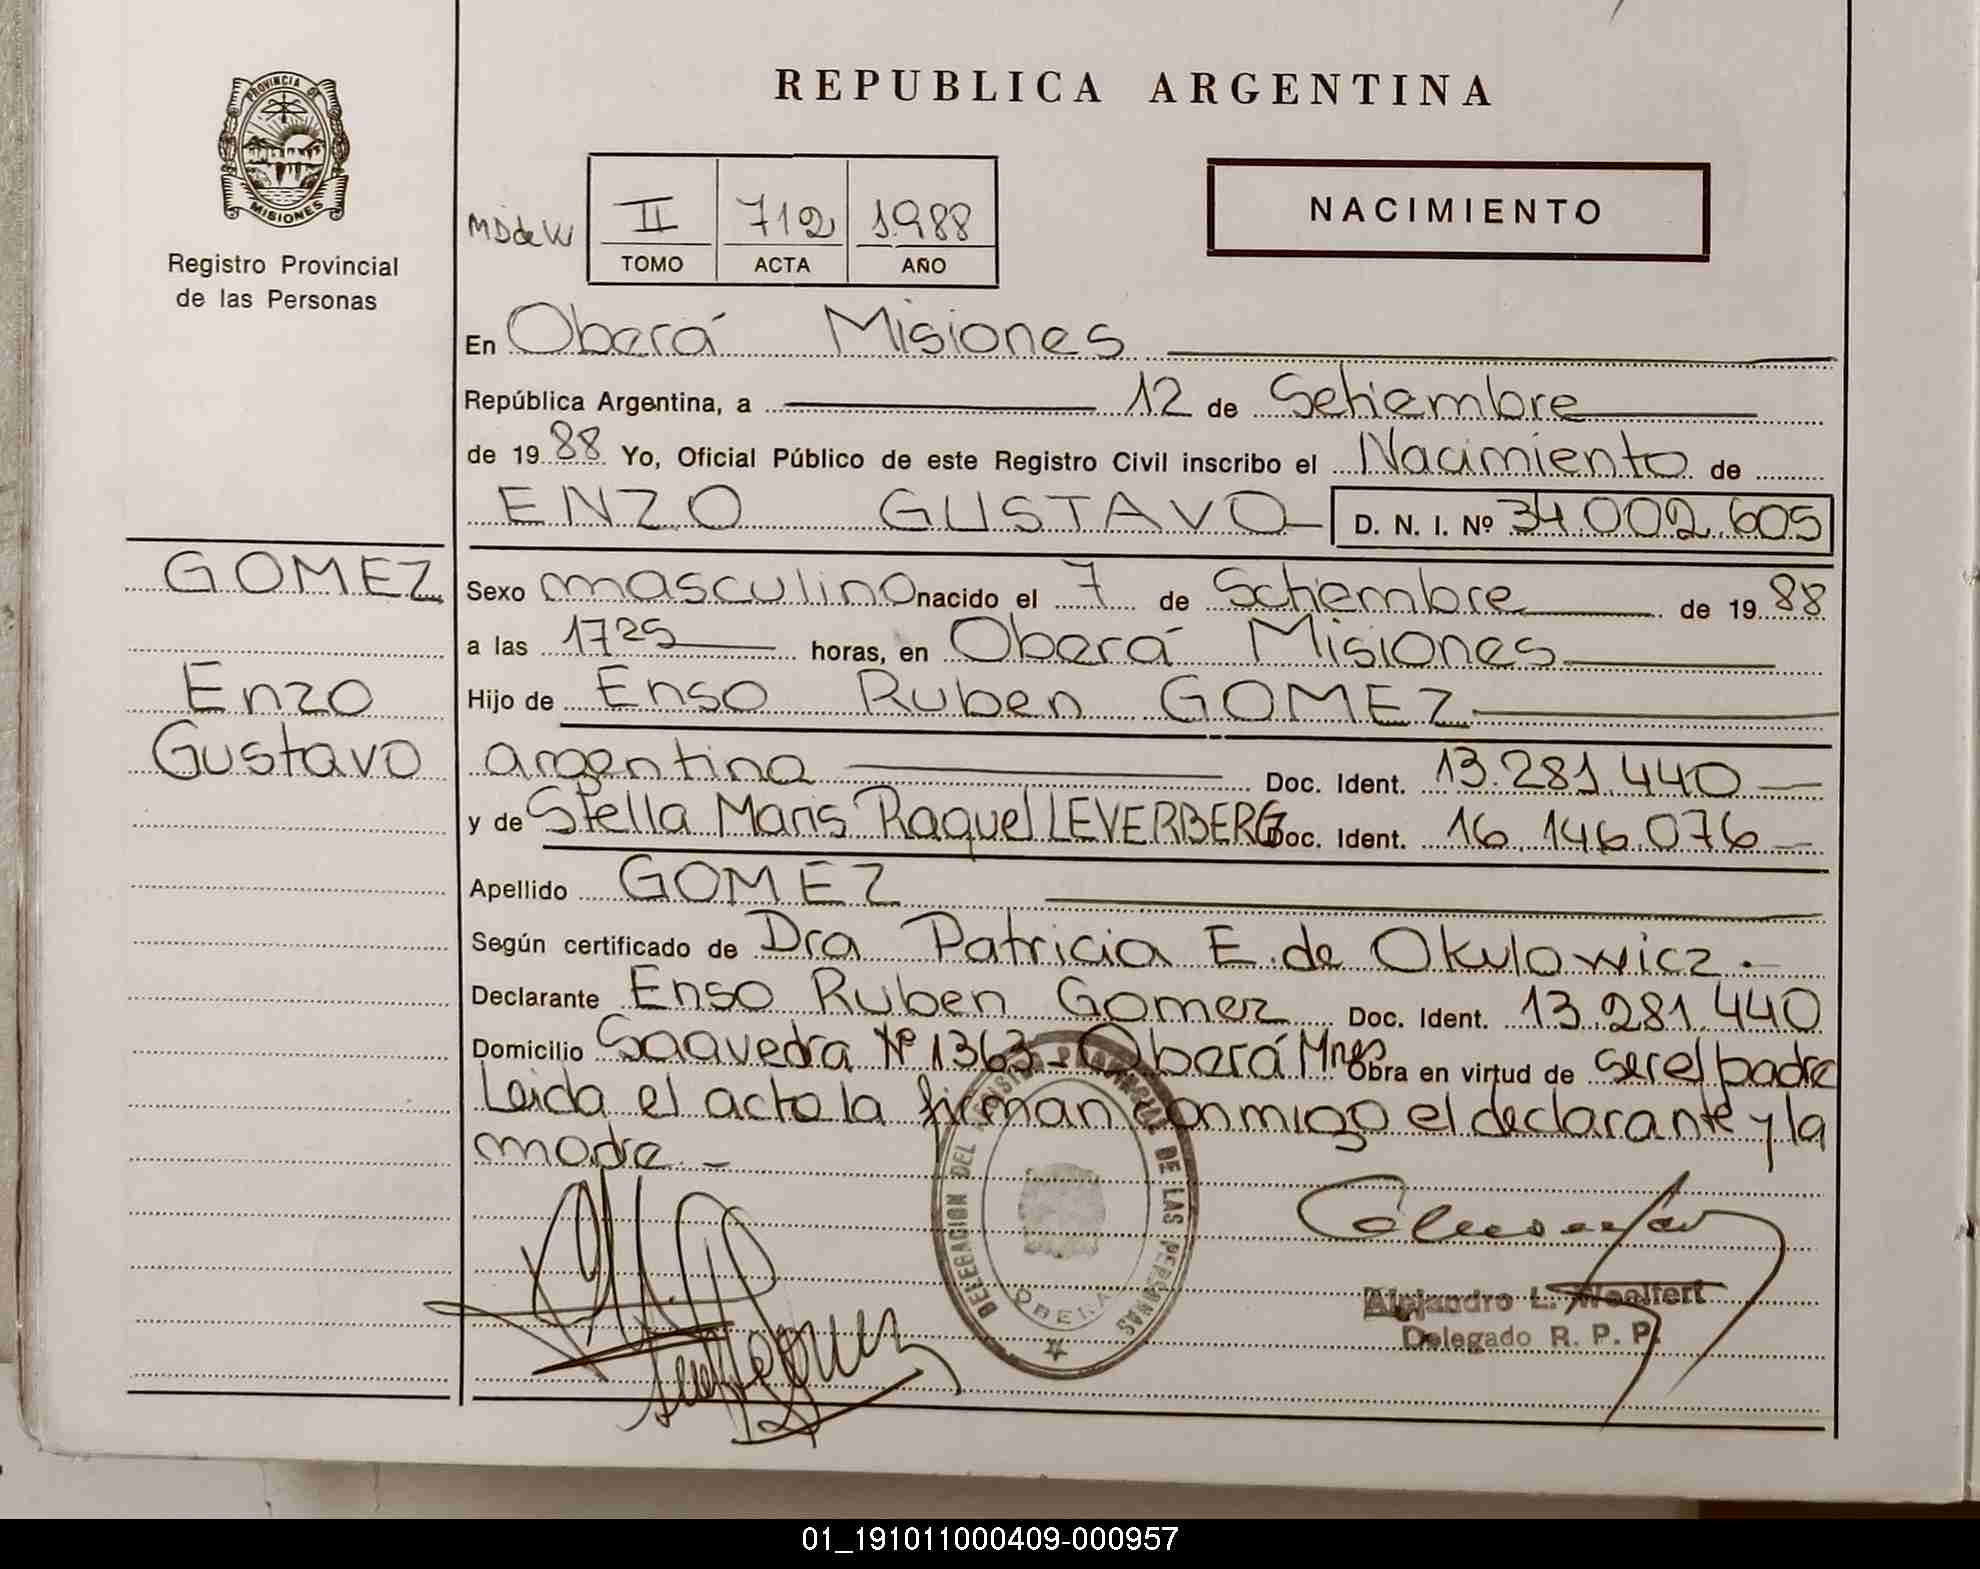 PROVINCIA DE
MISIONES
Registro Provincial
de las Personas
REPUBLICA ARGENTINA
NACIMIENTO
MDdeW
II 712 1988
TOMO ACTA AÑO
En Oberá Misiones
República Argentina, a 12 de Setiembre
de 1988 Yo, Oficial Público de este Registro Civil inscribo el Nacimiento de
ENZO GUSTAVO D. N. I. Nº 34.002.605
GOMEZ
Enzo
Gustavo
Sexo masculino nacido el 7 de Setiembre de 1988
a las 1725 horas, en Oberá Misiones
Hijo de Enso Ruben GOMEZ
argentina Doc. Ident. 13.281.440
y de Stella Maris Raquel LEVERBERG Doc. Ident. 16.146.076
Apellido GOMEZ
Según certificado de Dra Patricia E. de Okulowicz.
Declarante Enso Ruben Gomez Doc. Ident. 13.281.440
Domicilio Saavedra Nº 1363 - Oberá Mnes Obra en virtud de ser el padre
Leida el acta la firman conmigo el declarante y la
madre. -
DELEGACION DEL REGISTRO PROVINCIAL DE LAS PERSONAS
OBERA
Alejandro L. Woelfert
Delegado R. P. P.
01_191011000409-000957